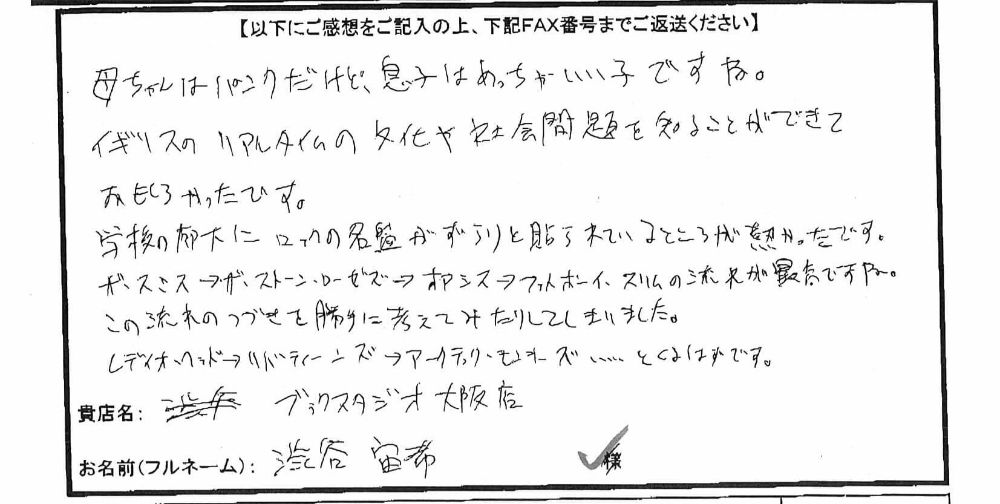 【以下にご感想をご記入の上、下記FAX番号までご返送ください】
母ちゃんはパンクだけど、息子はめっちゃいい子ですね。
イギリスのリアルタイムの文化や社会問題を知ることができて
おもしろかったです。
学校の廊下にロックの名盤がずらりと貼られているところが熱かったです。
ザ・スミス→ザ・ストーン・ローゼズ→オアシス→ファットボーイ・スリムの流れが最高ですね。
この流れのつづきを勝手に考えてみたりしてしまいました。
レディオヘッド→リバティーンズ→アークティック・モンキーズ……とくるはずです。
貴店名: ブックスタジオ大阪店
お名前(フルネーム): 渋谷 宙希 様